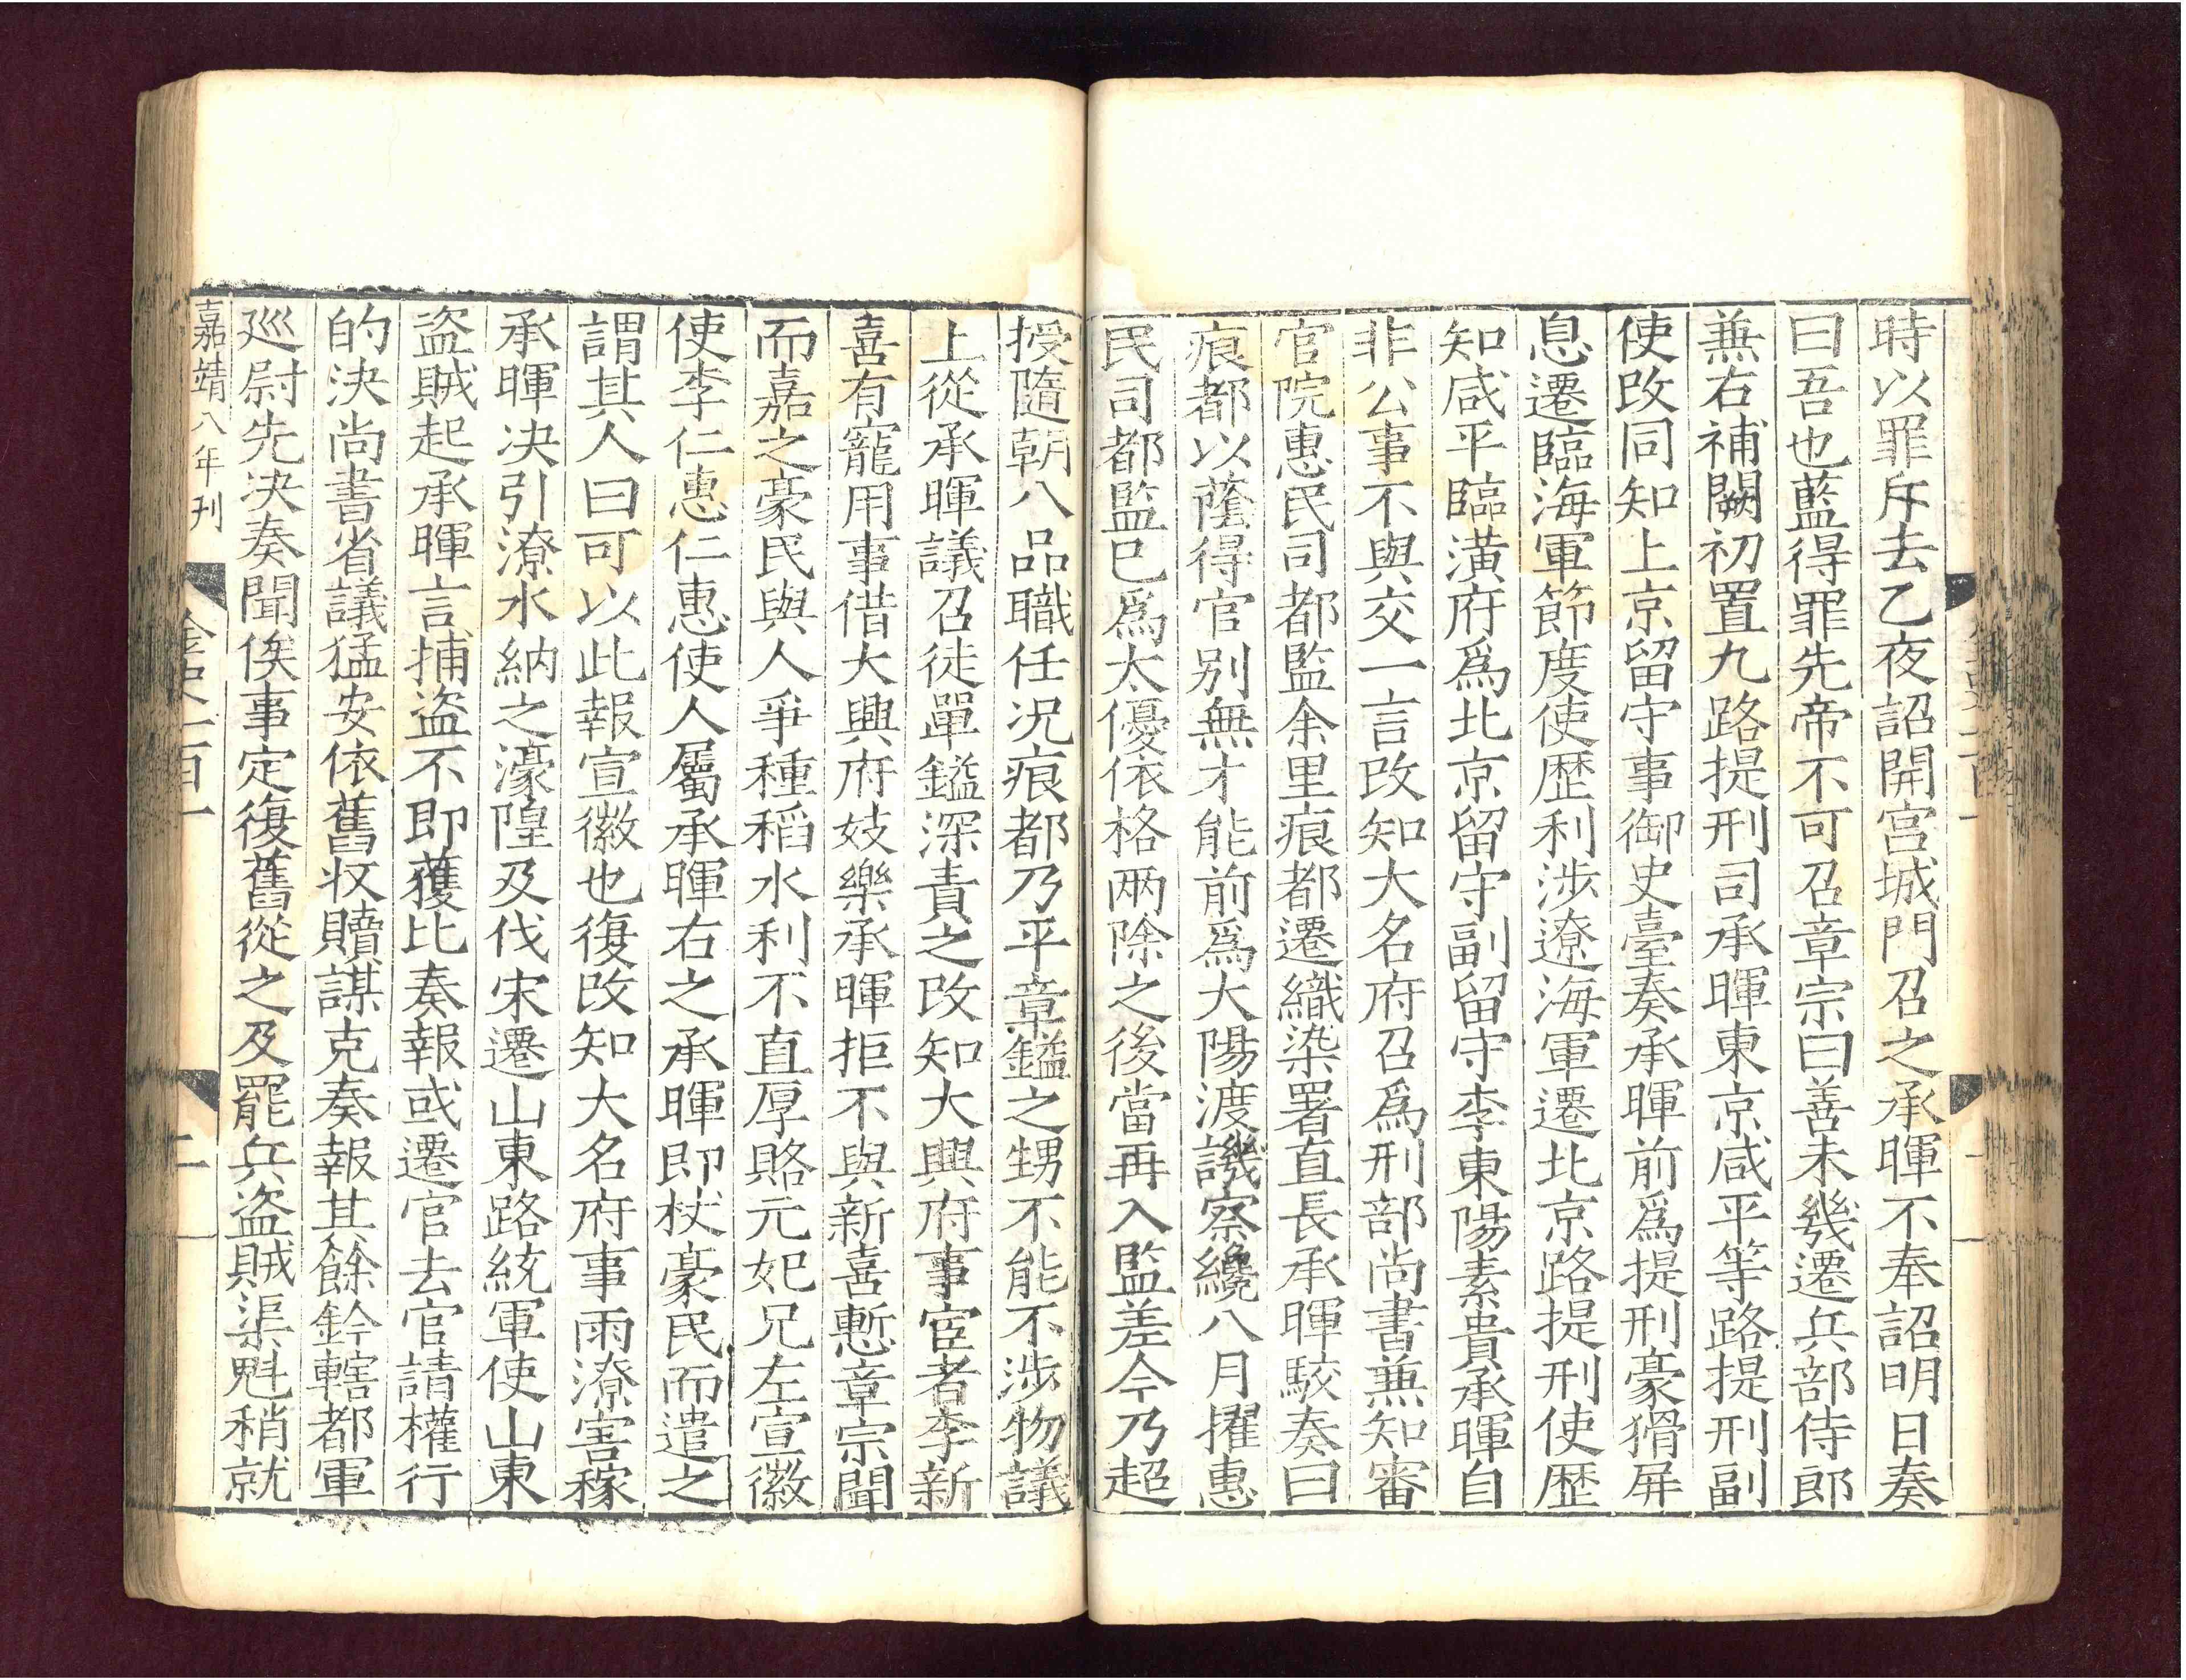 時以罪斥去乙夜詔開宮城門召之承暉不奉詔明日奏
曰吾也藍得罪先帝不可召章宗曰善未幾遷兵部侍郎
兼右補闕初置九路提刑司承暉東京咸平等路提刑副
使改同知上京留守事御史臺奏承暉前爲提刑豪猾屏
息遷臨海軍節度使歷利涉遼海軍遷北京路提刑使歷
知咸平臨潢府爲北京留守副留守李東陽素貴承暉自
非公事不與交一言改知大名府召爲刑部尚書兼知審
官院惠民司都監余里痕都遷織染署直長承暉駮奏曰
痕都以蔭得官别無才能前爲大陽渡譏察纔八月擢惠
民司都監已爲太優依格兩除之後當再入監差今乃超
授隨朝八品職任况痕都乃平章鎰之甥不能不涉物議
上從承暉議召徒單鎰深責之改知大興府事宦者李新
喜有寵用事借大興府妓樂承暉拒不與新喜慙章宗聞
而嘉之豪民與人爭種稻水利不直厚賂元妃兄左宣徽
使李仁惠仁惠使人屬承暉右之承暉即杖豪民而遣之
謂其人曰可以此報宣徽也復改知大名府事雨潦害稼
承暉决引潦水納之濠隍及伐宋遷山東路統軍使山東
盜賊起承暉言捕盜不即獲比奏報或遷官去官請權行
的决尚書省議猛安依舊收贖謀克奏報其餘鈐轄都軍
巡尉先决奏聞俟事定復舊從之及罷兵盜賊渠魁稍就
嘉靖八年刊
金史一百一
二